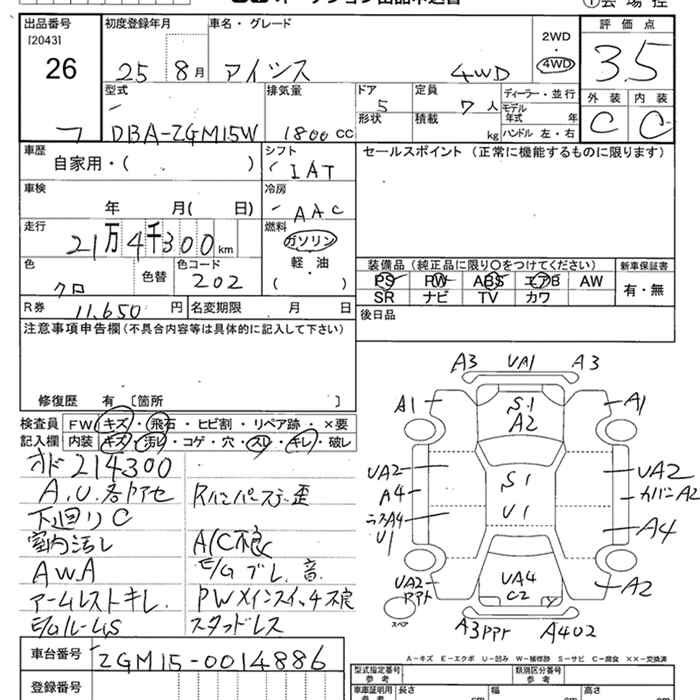 出品番号 初度登録年月 車名・グレード 2WD 4WD 評価点
[2043] 26 25 8月 アイシス 4WD 3.5
型式 排気量 ドア 定員 ディーラー・並行 外装 内装
DBA-ZGM15W 1800CC 5 7人 モデル年式 年 C C
形状 積載 kg ハンドル 左・右
車歴 シフト セールスポイント (正常に機能するものに限ります)
自家用・( ) IAT
車検 冷房
年 月( 日) AAC
走行 燃料
21万4千300km ガソリン
軽・油
( )
色 色替 色コード 装備品 (純正品に限り○をつけてください) 新車保証書
クロ 202 PS PW ABS エアB AW 有・無
SR ナビ TV カワ
R券 11,650円 名変期限 月 日 後日品
注意事項申告欄(不具合内容等は具体的に記入して下さい)
修復歴 有 〔箇所 〕
検査員 FW キズ・飛石・ヒビ割・リペア跡・×要
記入欄 内装 キズ・汚レ・コゲ・穴・スレ・キレ・破レ
214300
下回りC
Rバンパーステー歪
室内汚レ A/C不良
AWA E/Gブレ、音
アームレストキレ PWメインスイッチ不良
スタッドレス
A3 UA1 A3
A1 S1 A2 A1
UA2 UA2
A4 S1 カバンA2
U1 U1 A4
UA2 UA4 C2 A2
スペア
A3 A4U2
A-キズ E-エクボ U-凹み W-補修跡 S-サビ C-腐食 ××-交換済
車台番号 ZGM15-0014886
登録番号
型式指定番号 参考 類別区分番号 参考
車庫証明用 参考 長さ cm 幅 cm 高さ cm